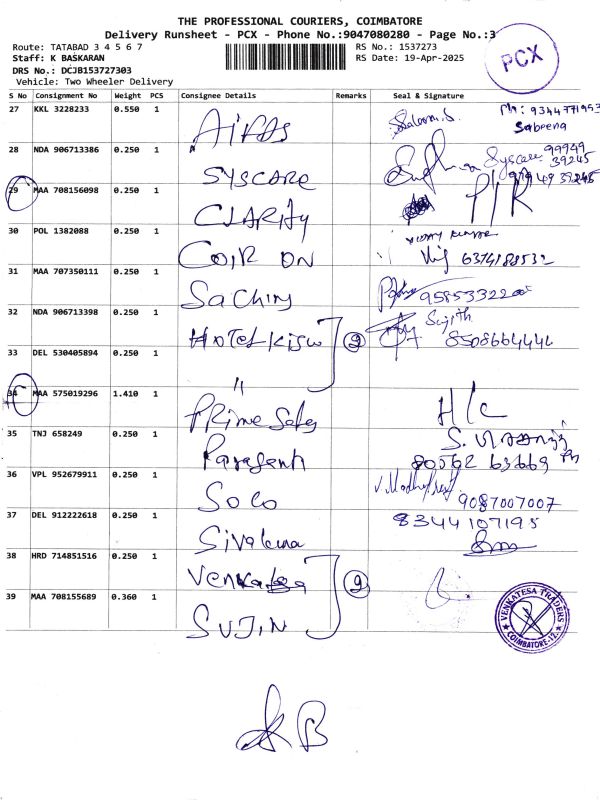 THE PROFESSIONAL COURIERS, COIMBATORE
Delivery Runsheet - PCX - Phone No.:9047080280 - Page No.:3
Route: TATABAD 3 4 5 6 7
RS No.: 1537273
Staff: K BASKARAN
RS Date: 19-Apr-2025
DRS No.: DCJB153727303
Vehicle: Two Wheeler Delivery
PCX
S No Consignment No Weight PCS Consignee Details Remarks Seal & Signature
27 KKL 3228233 0.550 1
Ph: 9344771953
Sabeena
28 NDA 906713386 0.250 1 SYSCARE Syscare 99949
39245
29 MAA 708156098 0.250 1 CLARITY
30 POL 1382088 0.250 1 COIR ON
6374188532
31 MAA 707350111 0.250 1 Sachin
32 NDA 906713398 0.250 1 Sujith
8508664444
33 DEL 530405894 0.250 1 "
2
34 MAA 575019296 1.410 1 Prime Sales
35 TNJ 658249 0.250 1
80562 63669
36 VPL 952679911 0.250 1 SOLO
9087007007
37 DEL 912222618 0.250 1 8344107195
38 HRD 714851516 0.250 1
2
39 MAA 708155689 0.360 1 SUJIN
VENKATESA TRADERS
COIMBATORE-12.